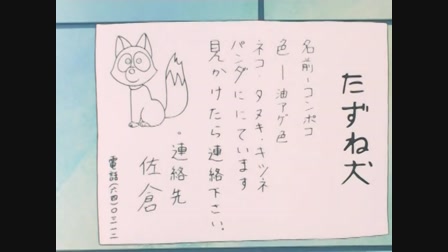 たずね犬
名前ーコンポコ
色ー油アゲ色
ネコ・タヌキ・キツネ
パンダににています
見かけたら連絡下さい。
・連絡先
佐倉
電話(六四)〇三一二